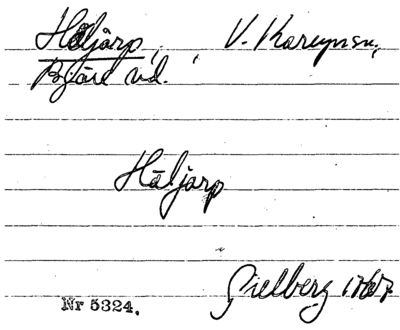 Häljarp, V. Karupsn,
Bjäre hd.
Häljarp
Gielberg
Nr 5324.